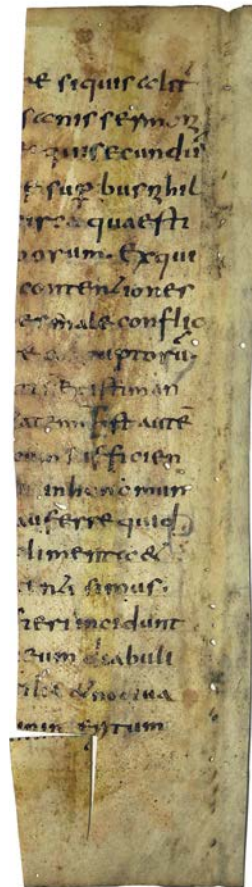 re siquis alit
sanis sermonib
quae secundū
e supbus nihil
circa quaesti
borum. Exqui
contentiones
es male conflic
corruptorū.
existiman
tatem Est autē
sufficien
inhunc mun
auferre quid
limenta &
tenti sumus.
fieri incidunt
eum diabuli
tilia & nociua
interitum